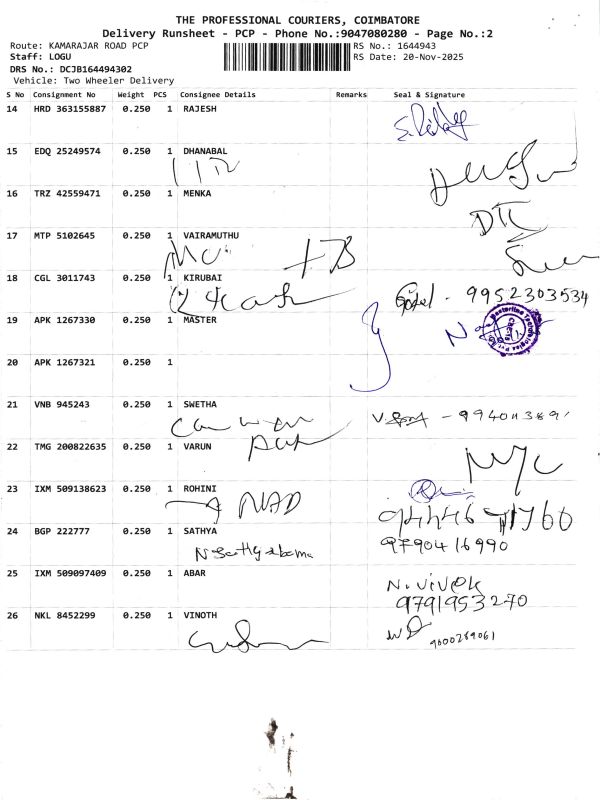 THE PROFESSIONAL COURIERS, COIMBATORE
Delivery Runsheet - PCP - Phone No.:9047080280 - Page No.:2
Route: KAMARAJAR ROAD PCP
RS No.: 1644943
Staff: LOGU
RS Date: 20-Nov-2025
DRS No.: DCJB164494302
Vehicle: Two Wheeler Delivery
S No Consignment No Weight PCS Consignee Details Remarks Seal & Signature
14 HRD 363155887 0.250 1 RAJESH
15 EDQ 25249574 0.250 1 DHANABAL
16 TRZ 42559471 0.250 1 MENKA
17 MTP 5102645 0.250 1 VAIRAMUTHU
18 CGL 3011743 0.250 1 KIRUBAI
9952303534
19 APK 1267330 0.250 1 MASTER
20 APK 1267321 0.250 1
21 VNB 945243 0.250 1 SWETHA
22 TMG 200822635 0.250 1 VARUN
23 IXM 509138623 0.250 1 ROHINI
24 BGP 222777 0.250 1 SATHYA
9790416990
25 IXM 509097409 0.250 1 ABAR
N. VIVEK
9791953270
26 NKL 8452299 0.250 1 VINOTH
9600289061